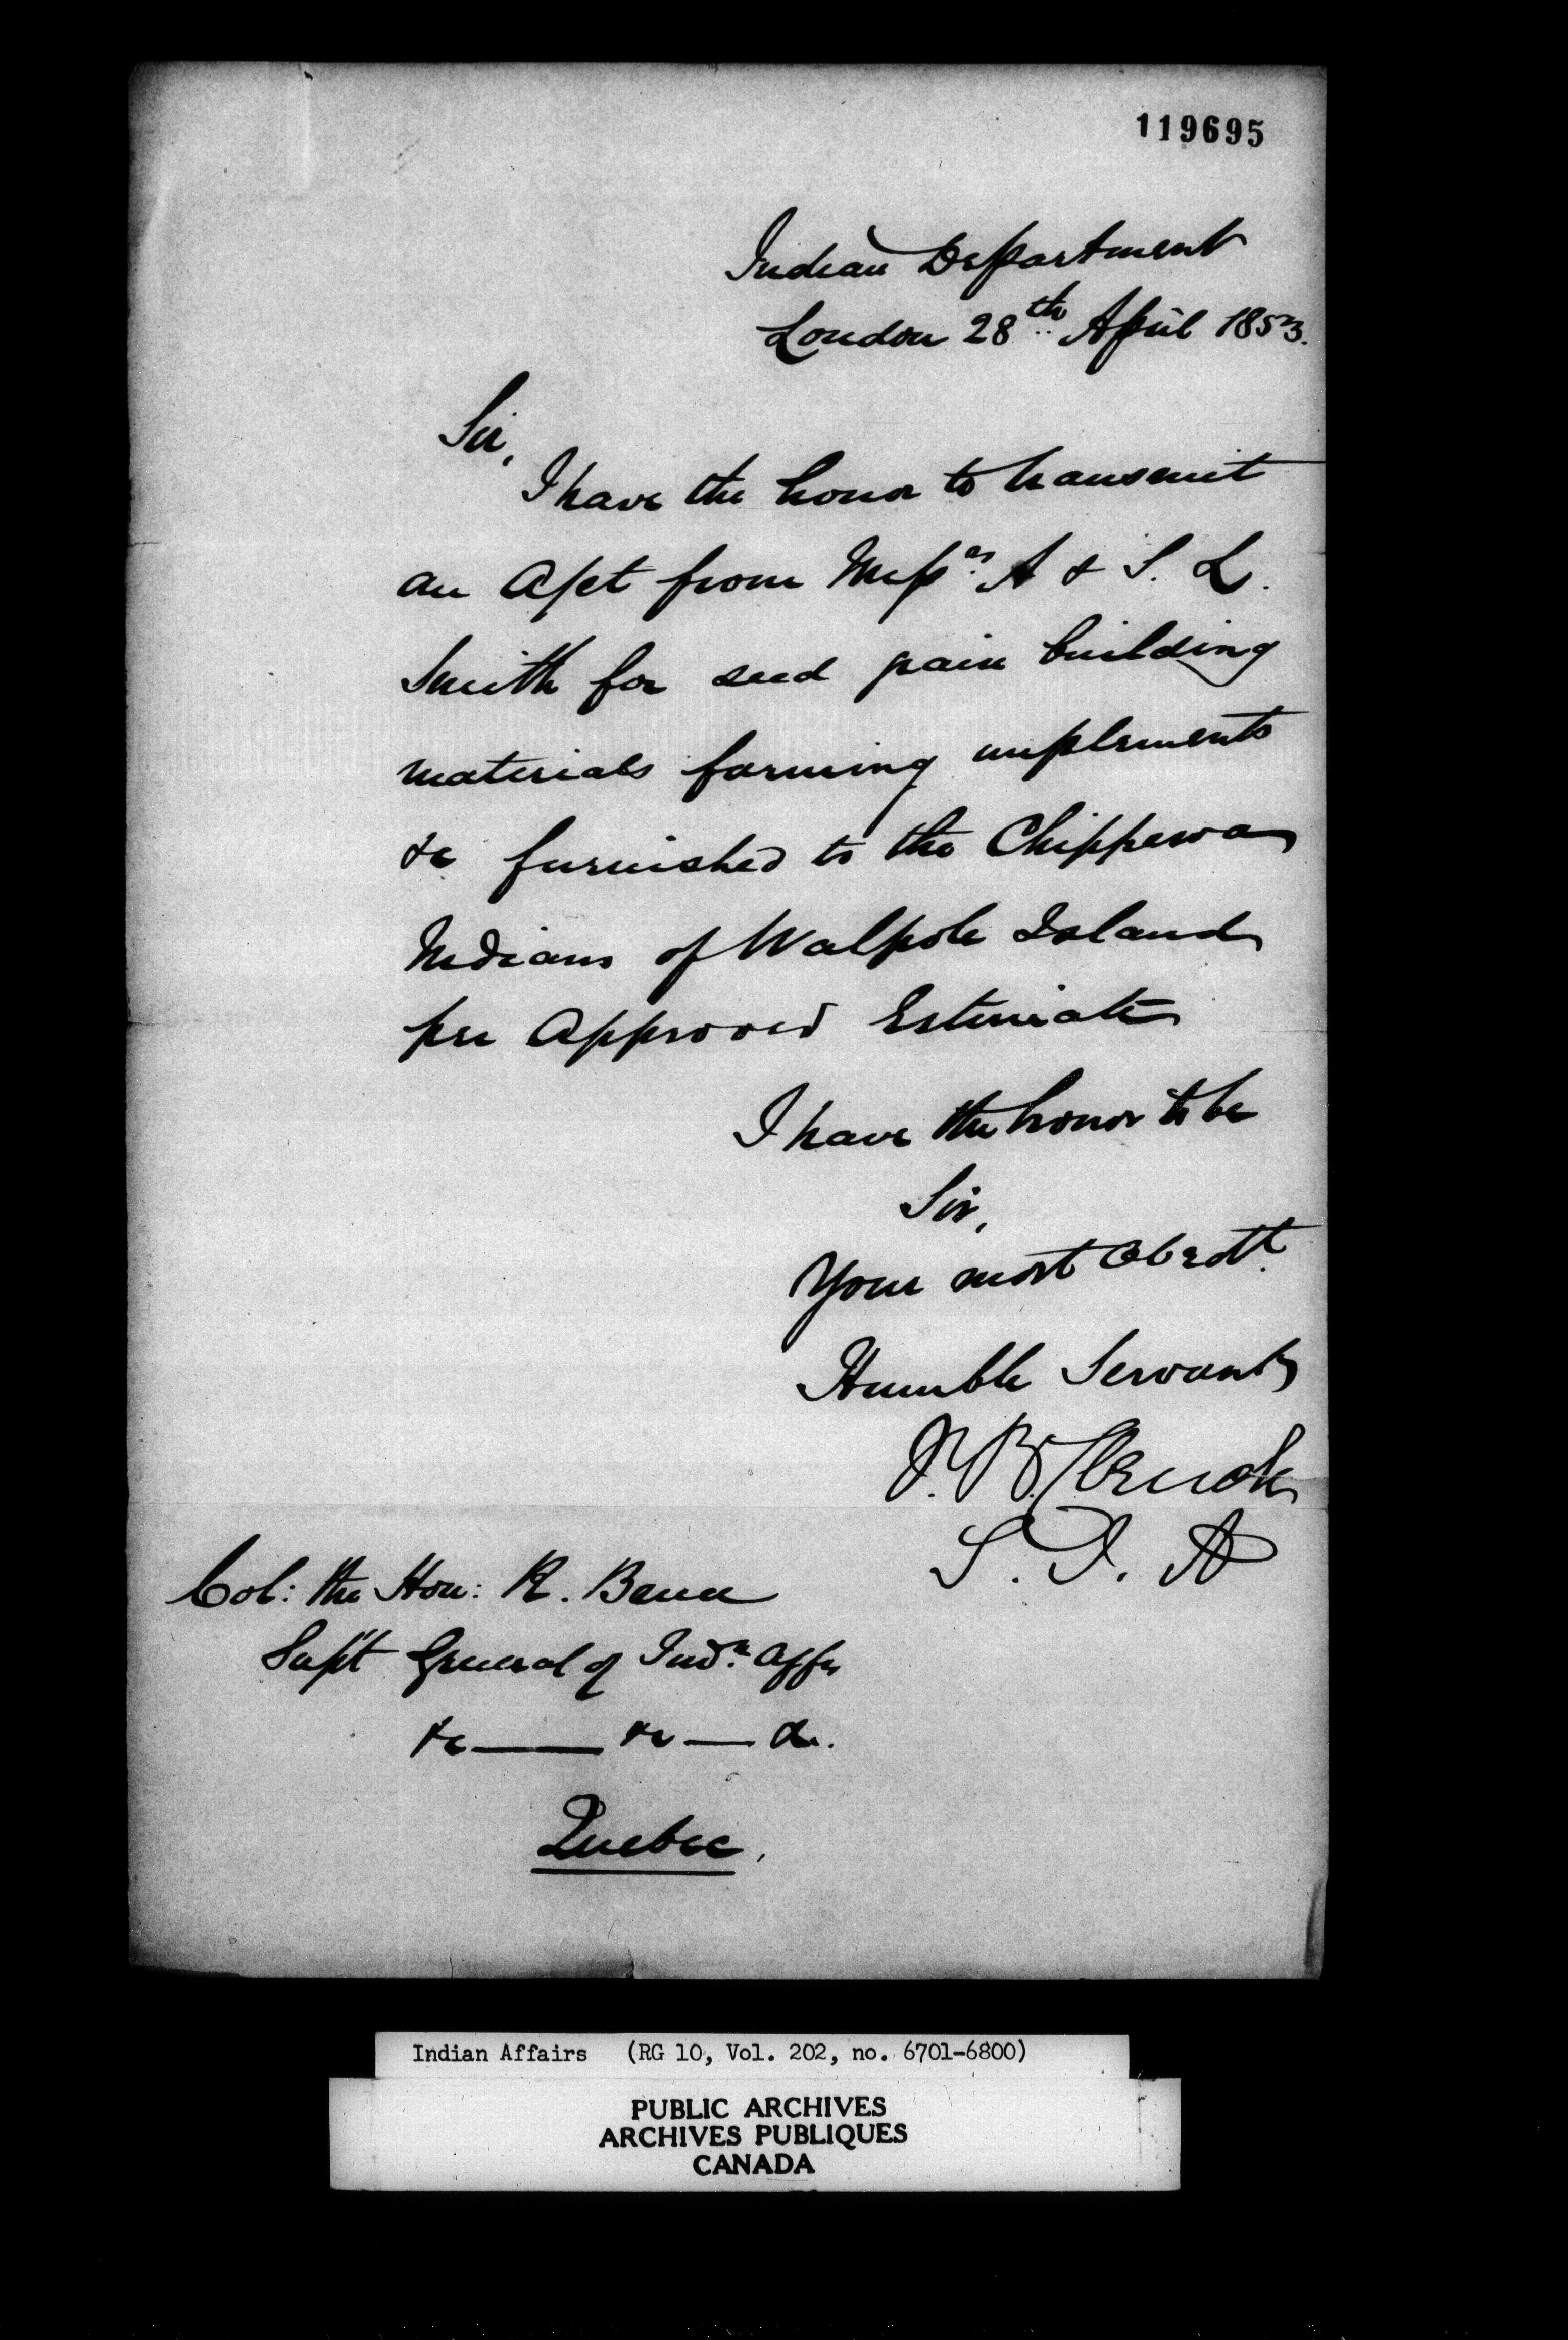 119695
Indian Department
London 28th April 1853.
Sir,
I have the honor to transmit
an Acct from Messrs A & S. L.
Smith for seed grain building
materials farming implements
&c furnished to the Chippewa
Indians of Walpole Island
per Approved Estimate
I have the honor to be
Sir,
Your most Obedt.
Humble Servant
J. B. Clench
S. I. A
Col: the Hon: R. Bruce
Supt General of Indn. Affrs
&c — &c — &c.
Quebec.
Indian Affairs (RG 10, Vol. 202, no. 6701-6800)
PUBLIC ARCHIVES
ARCHIVES PUBLIQUES
CANADA